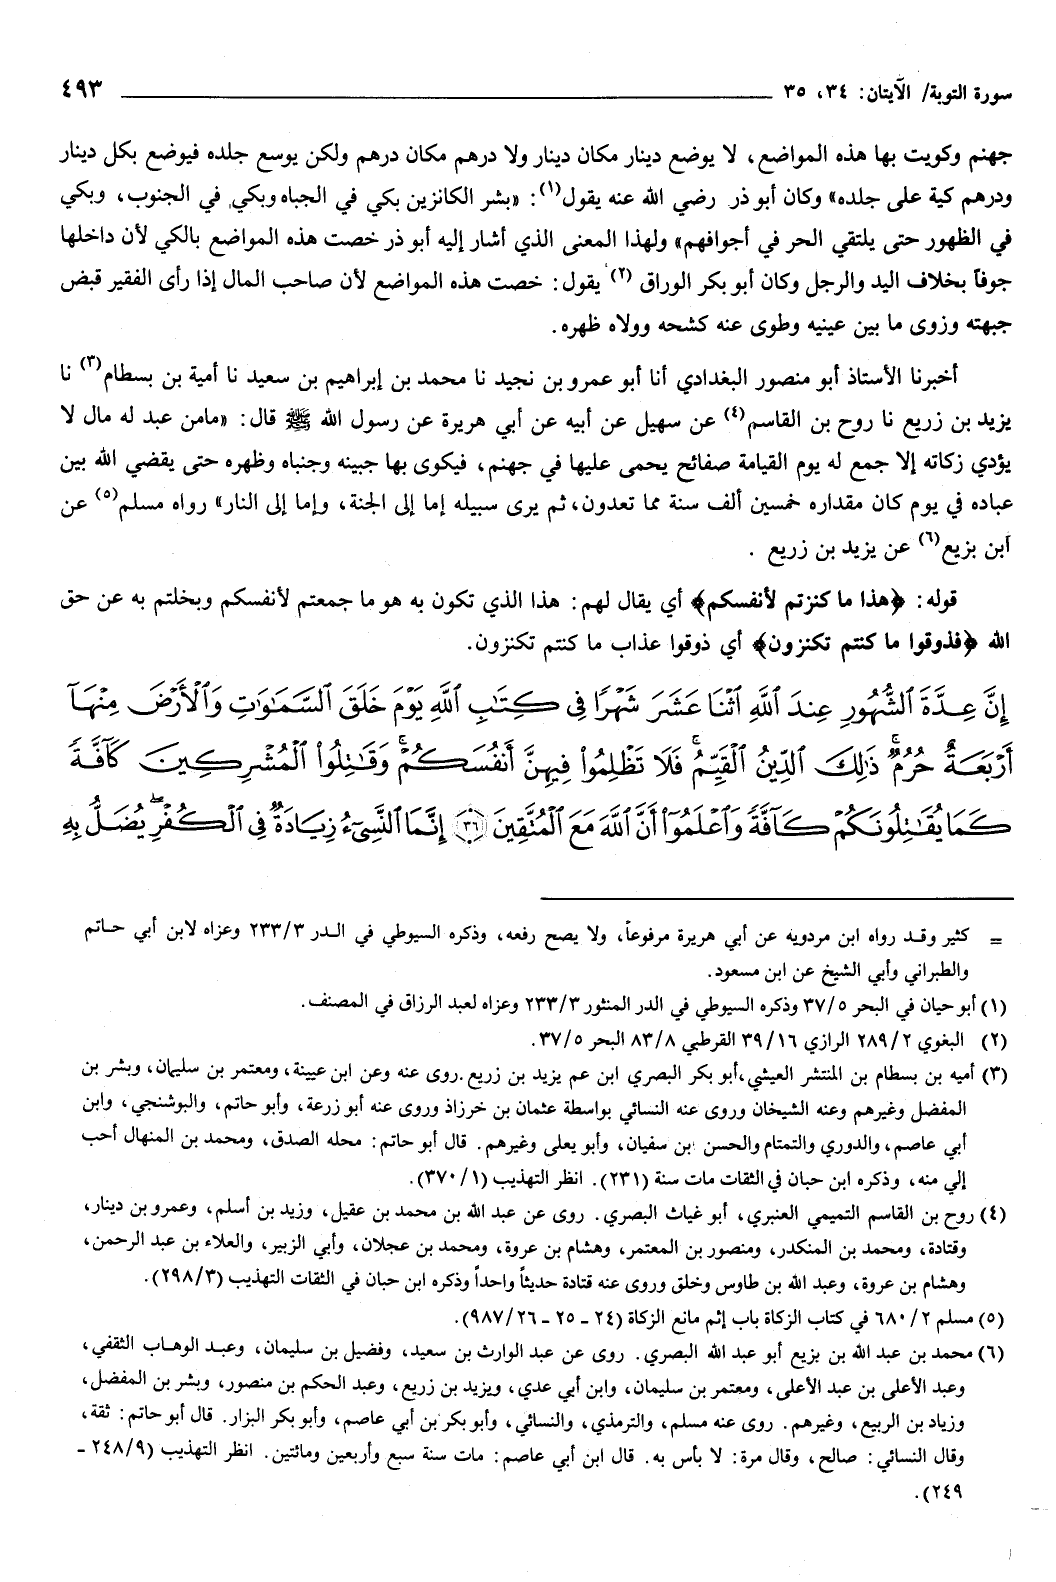 سورة التوبة/ الآيتان: ٣٤، ٣٥ ٤٩٣
جهنم وكويت بها هذه المواضع، لا يوضع دينار مكان دينار ولا درهم مكان درهم ولكن يوسع جلده فيوضع بكل دينار
ودرهم كية على جلده» وكان أبو ذر رضي الله عنه يقول(١): «بشر الكانزين بكي في الجباه وبكي في الجنوب، وبكي
في الظهور حتى يلتقي الحر في أجوافهم» ولهذا المعنى الذي أشار إليه أبو ذر خصت هذه المواضع بالكي لأن داخلها
جوفاً بخلاف اليد والرجل وكان أبو بكر الوراق (٢) يقول: خصت هذه المواضع لأن صاحب المال إذا رأى الفقير قبض
جبهته وزوى ما بين عينيه وطوى عنه كشحه وولاه ظهره.
أخبرنا الأستاذ أبو منصور البغدادي أنا أبو عمرو بن نجيد نا محمد بن إبراهيم بن سعيد نا أمية بن بسطام(٣) نا
يزيد بن زريع نا روح بن القاسم(٤) عن سهيل عن أبيه عن أبي هريرة عن رسول الله ﷺ قال: «مامن عبد له مال لا
يؤدي زكاته إلا جمع له يوم القيامة صفائح يحمى عليها في جهنم، فيكوى بها جبينه وجنباه وظهره حتى يقضي الله بين
عباده في يوم كان مقداره خمسين ألف سنة مما تعدون، ثم يرى سبيله إما إلى الجنة، وإما إلى النار» رواه مسلم(٥) عن
ابن بزيع(٦) عن يزيد بن زريع .
قوله: ﴿هذا ما كنزتم لأنفسكم﴾ أي يقال لهم: هذا الذي تكون به هو ما جمعتم لأنفسكم وبخلتم به عن حق
الله ﴿فذوقوا ما كنتم تكنزون﴾ أي ذوقوا عذاب ما كنتم تكنزون.
إِنَّ عِدَّةَ الشُّهُورِ عِندَ اللَّهِ اثْنَا عَشَرَ شَهْرًا فِي كِتَٰبِ اللَّهِ يَوْمَ خَلَقَ السَّمَٰوَٰتِ وَالْأَرْضَ مِنْهَآ
أَرْبَعَةٌ حُرُمٌ ۚ ذَٰلِكَ الدِّينُ الْقَيِّمُ ۚ فَلَا تَظْلِمُوا فِيهِنَّ أَنفُسَكُمْ ۚ وَقَٰتِلُوا الْمُشْرِكِينَ كَآفَّةً
كَمَا يُقَٰتِلُونَكُمْ كَآفَّةً وَاعْلَمُوٓا أَنَّ اللَّهَ مَعَ الْمُتَّقِينَ ٣٦ إِنَّمَا النَّسِيٓءُ زِيَادَةٌ فِي الْكُفْرِ ۖ يُضَلُّ بِهِ
= كثير وقد رواه ابن مردويه عن أبي هريرة مرفوعاً، ولا يصح رفعه، وذكره السيوطي في الدر ٢٣٣/٣ وعزاه لابن أبي حاتم
والطبراني وأبي الشيخ عن ابن مسعود.
(١) أبو حيان في البحر ٣٧/٥ وذكره السيوطي في الدر المنثور ٢٣٣/٣ وعزاه لعبد الرزاق في المصنف.
(٢) البغوي ٢٨٩/٢ الرازي ٣٩/١٦ القرطبي ٨٣/٨ البحر ٣٧/٥.
(٣) أميه بن بسطام بن المنتشر العيشي،أبو بكر البصري ابن عم يزيد بن زريع.روى عنه وعن ابن عيينة، ومعتمر بن سليمان، وبشر بن
المفضل وغيرهم وعنه الشيخان وروى عنه النسائي بواسطة عثمان بن خرزاذ وروى عنه أبو زرعة، وأبو حاتم، والبوشنجي، وابن
أبي عاصم، والدوري والتمتام والحسن بن سفيان، وأبو يعلى وغيرهم. قال أبو حاتم: محله الصدق، ومحمد بن المنهال أحب
إلي منه، وذكره ابن حبان في الثقات مات سنة (٢٣١). انظر التهذيب (٣٧٠/١).
(٤) روح بن القاسم التميمي العنبري، أبو غياث البصري. روى عن عبد الله بن محمد بن عقيل، وزيد بن أسلم، وعمرو بن دينار،
وقتادة، ومحمد بن المنكدر، ومنصور بن المعتمر، وهشام بن عروة، ومحمد بن عجلان، وأبي الزبير، والعلاء بن عبد الرحمن،
وهشام بن عروة، وعبد الله بن طاوس وخلق وروى عنه قتادة حديثاً واحداً وذكره ابن حبان في الثقات التهذيب (٢٩٨/٣).
(٥) مسلم ٦٨٠/٢ في كتاب الزكاة باب إثم مانع الزكاة (٢٤ - ٢٥ - ٩٨٧/٢٦).
(٦) محمد بن عبد الله بن بزيع أبو عبد الله البصري. روى عن عبد الوارث بن سعيد، وفضيل بن سليمان، وعبد الوهاب الثقفي،
وعبد الأعلى بن عبد الأعلى، ومعتمر بن سليمان، وابن أبي عدي، ويزيد بن زريع، وعبد الحكم بن منصور، وبشر بن المفضل،
وزياد بن الربيع، وغيرهم. روى عنه مسلم، والترمذي، والنسائي، وأبو بكر بن أبي عاصم، وأبو بكر البزار. قال أبو حاتم: ثقة،
وقال النسائي: صالح، وقال مرة: لا بأس به. قال ابن أبي عاصم: مات سنة سبع وأربعين ومائتين. انظر التهذيب (٢٤٨/٩ -
٢٤٩).